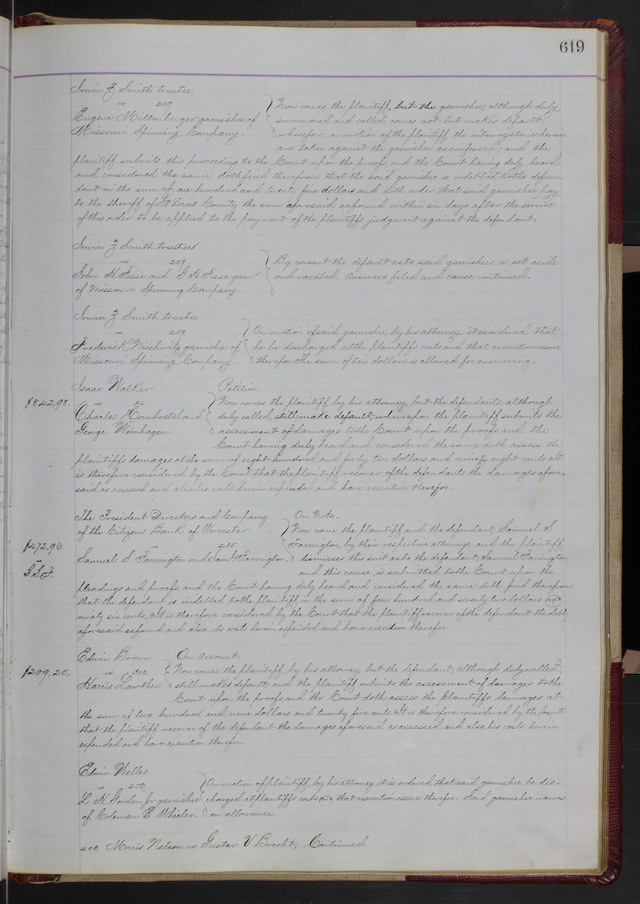 619
Irwin Z Smith trustee
vs 259
Eugene Miltenberger garnishee of
Missouri Spinning Company.
Now comes the plaintiff, but the garnishee, although duly
summoned and called, comes not but makes default;
wherefore, on motion of the plaintiff the interrogatories herein
are taken against the garnishee as confessed; and the
plaintiff submits this proceeding to the Court upon the proofs, and the Court having duly heard
and considered the same doth find therefrom that the said garnishee is indebted to the defen-
dant in the sum of one hundred and twenty five dollars and doth order that said garnishee pay
to the sheriff of St Louis County the sum aforesaid as found within six days after the service
of this order to be applied to the payment of the plaintiffs judgment against the defendant.
Irwin Z Smith trustee
vs 259
John H and G H garn
of Missouri Spinning Company.
By consent the default as to said garnishees is set aside
and vacated, answers filed and cause continued.
Irwin Z Smith trustee
vs 259
Frederick garnishee of
Missouri Spinning Company
On motion of said garnishee, by his attorney, it is ordered that
he be discharged at the plaintiffs costs and that execution issue
therefor. The sum of ten dollars is allowed for answering.
$842,98.
Isaac Walker
vs
Charles Hornbostel and
George Weinhagen.
Petition.
Now comes the plaintiff by his attorney, but the defendants, although
duly called, still make default; whereupon the plaintiff submits the
assessment of damages to the Court upon the proofs and the
Court having duly heard and considered the same doth assess the
plaintiffs damages at the sum of eight hundred and forty two dollars and ninety eight cents. It
is therefore considered by the Court that the plaintiff recover of the defendants the damages afore-
said as assessed and also his costs herein expended and have execution therefor.
$472,96
The President Directors and Company
of the Citizens Bank of Worcester
vs
Samuel S Farrington and Farrington
On Note.
Now come the plaintiff, and the defendant Samuel S
Farrington, by their respective attorneys and the plaintiff
dismisses this suit as to the defendant, Farrington
and this cause is submitted to the Court upon the
pleadings and proofs, and the Court having duly heard and considered the same doth find therefrom
that the defendant is indebted to the plaintiff in the sum of four hundred and seventy two dollars and
ninety six cents. It is therefore considered by the Court that the plaintiff recover of the defendant the debt
aforesaid as found and also its costs herein expended and have execution therefor.
$209,25.
Edwin Brown
vs
Harris Lowther
On Account.
Now comes the plaintiff, by his attorney, but the defendant, although duly called,
still makes default; and the plaintiff submits the assessment of damages to the
Court upon the proofs and the Court doth assess the plaintiffs damages at
the sum of two hundred and nine dollars and twenty five cents. It is therefore considered by the Court
that the plaintiff recover of the defendant the damages aforesaid as assessed and also his costs herein
expended and have execution therefor.
Edwin Welles
vs
L H Gordon Jr garnishee
of Coleman E Wheeler.
On motion of plaintiff, by his attorney, it is ordered that said garnishee be dis-
charged at plaintiffs costs and that execution issue therefor. Said garnishee waives
an allowance.
Morris Nelson vs Gustav V Brecht; Continued.